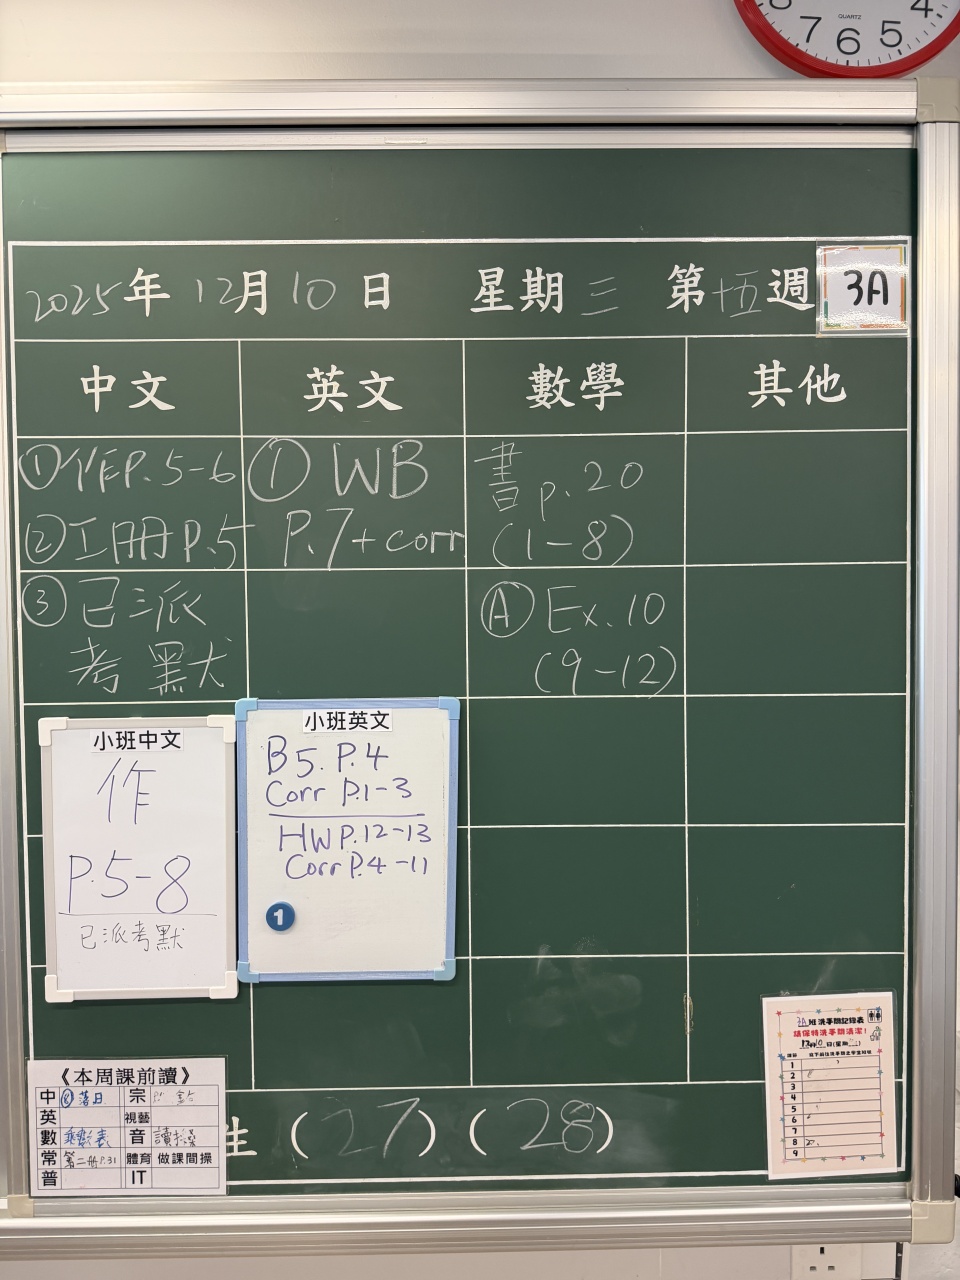 7 6 5 4
QUARTZ
2025年 12月 10日 星期三 第十五週
3A
中文 英文 數學 其他
①作P.5-6
②工冊P.5
③已派
考默
① WB
P.7+corr
書p.20
(1-8)
Ⓐ Ex.10
(9-12)
小班中文
作
P.5-8
已派考默
小班英文
B5. P.4
Corr P.1-3
HW P.12-13
Corr P.4-11
1
《本周課前讀》
中 ⑧落日 宗
英 視藝
數 乘數表 音
常 第二冊P.31 體育 做課間操
普 IT
生 (27) (28)
3A班洗手間記錄表
請保持洗手間清潔!
12月10日(星期三)
1
2
3
4
5
6
7
8
9